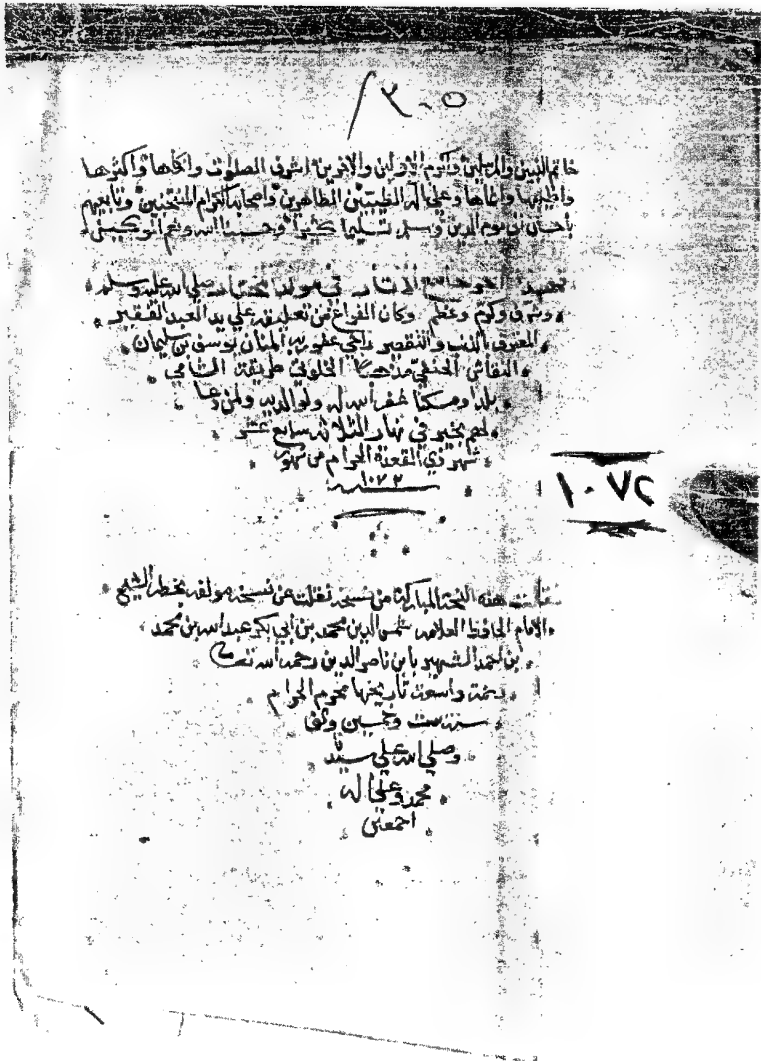 ٣٠٥
خاتم النبيين والمرسلين واكرم الاولين والاخرين اشرف الصلوات واكملها واكثرها
واطيبها وعلى اله الطيبين الطاهرين واصحابه الكرام المنتخبين وتابعيهم
باحسان الى يوم الدين وسلم تسليما كثيرا وحسبنا الله ونعم الوكيل
جامع الاثار في مولد المختار صلى الله عليه وسلم
وشرف وكرم وعظم وكان الفراغ من تعليقه على يد العبد الفقير
المعترف بالذنب والتقصير راجي عفو ربه المنان يوسف بن سليمان
النقاش الحنفي مذهبا الخلوتي طريقة الشامي
بلدا ومسكنا غفر الله له ولوالديه ولمن دعا
لهم بخير في نهار الثلاثا سابع عشر
شهر ذي القعدة الحرام من شهور
سنة ١٠٧٢
١٠٧٢
نقلت هذه النسخة المباركة من نسخة نقلت عن نسخة مولفه بخط الشيخ
الامام الحافظ العلامه شمس الدين محمد بن ابي بكر عبد الله بن محمد
بن احمد الشهير بابن ناصر الدين رحمه الله تعالى
رحمة واسعة تاريخها محرم الحرام
سنة ست وخمسين
وصلى الله على سيدنا
محمد وعلى اله
اجمعين